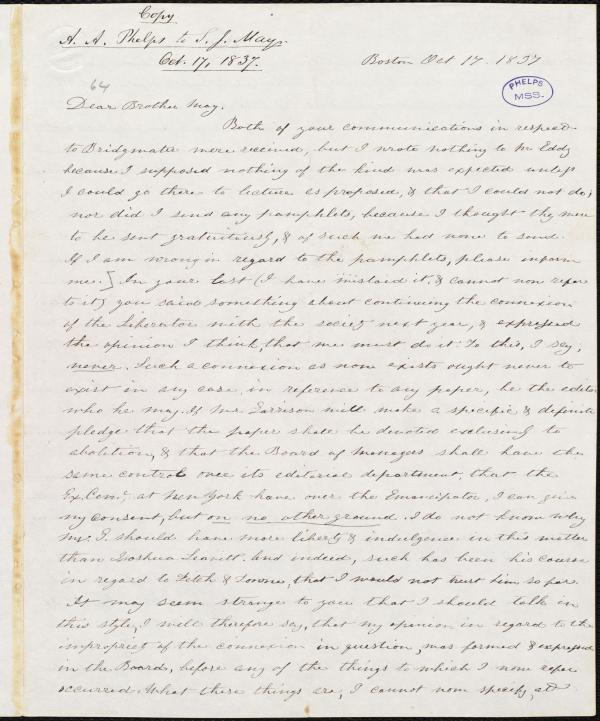 Copy
A. A. Phelps to S. J. May.
Oct. 17, 1837.
Boston Oct 17. 1837
64
PHELPS
MSS.
Dear Brother May.
Both of your communications in respect
to Bridgwater were received, but I wrote nothing to Mr Eddy
because I supposed nothing of the kind was expected unless
I could go there to lecture as proposed, & that I could not do;
nor did I send any pamphlets, because I thought they were
to be sent gratuitiously, & of such we had none to send.
If I am wrong in regard to the pamphlets, please inform
me.] In your last (I have mislaid it, & cannot now refer
to it) you said something about continuing the connexion
of the Liberator with the society next year, & expressed
the opinion I think, that we must do it. To this, I say,
never. Such a connexion as now exists ought never to
exist in any case, in reference to any paper, be the editor
who he may. If Mr. Garrison will make a specific & definite
pledge that the paper shall be devoted exclusively to
abolition, & that the Board of Managers shall have the
same control over its editorial department, that the
Ex. Com. at New York have over the Emancipator, I can give
my consent, but on no other ground. I do not know why
Mr. G. should have more liberty & indulgence in this matter
than Joshua Leavitt. And indeed, such has been his course
in regard to Fitch & Towne, that I would not trust him so far.
It may seem strange to you that I should talk in
this style, I will therefore say, that my opinion in regard to the
impropriety of the connexion in question, was formed & expressed
in the Board, before any of the things to which I now refer
occurred. What these things are, I cannot now specify, at